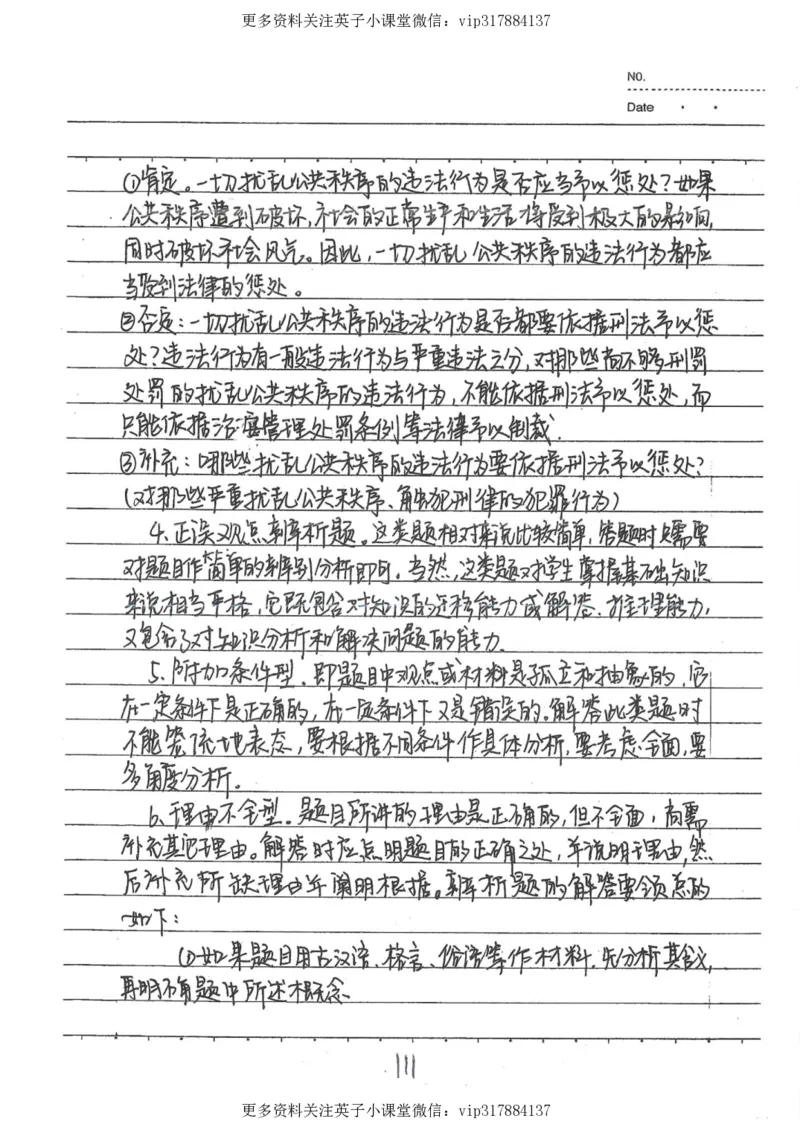 更多资料关注英子小课堂微信：vip317884137
NO.
Date
①肯定。一切扰乱公共秩序的违法行为是否应当予以惩处？如果
公共秩序遭到破坏，社会的正常生产和生活将受到极大的影响，
同时破坏社会风气。因此，一切扰乱公共秩序的违法行为都应
当受到法律的惩处。
②否定：一切扰乱公共秩序的违法行为是否都要依据刑法予以惩
处？违法行为有一般违法行为与严重违法之分，对那些尚不够刑罚
处罚的扰乱公共秩序的违法行为，不能依据刑法予以惩处，而
只能依据治安管理处罚条例等法律予以制裁.
③补充：哪些扰乱公共秩序的违法行为要依据刑法予以惩处？
（对那些严重扰乱公共秩序、触犯刑律的犯罪行为）
4、正误观点辨析题。这类题相对来说比较简单，答题时只需要
对题目作简单的辨别分析即可。当然，这类题对学生掌握基础知识
来说相当严格，它既包含对知识的迁移能力或解答、推理能力，
又包含了对知识分析和解决问题的能力.
5、附加条件型。即题目中观点或材料是孤立和抽象的，它
在一定条件下是正确的，在一定条件下又是错误的。解答此类题时
不能笼统地表态，要根据不同条件作具体分析，要考虑全面，要
多角度分析。
6、理由不全型。题目所讲的理由是正确的，但不全面，尚需
补充其它理由。解答时应点明题目的正确之处，并说明理由，然
后补充所缺理由并阐明根据。辨析题的解答要领总的
如下：
(1)如果题目用古汉语、格言、俗语等作材料，先分析其含义，
再明确题中所述概念
111
更多资料关注英子小课堂微信：vip317884137